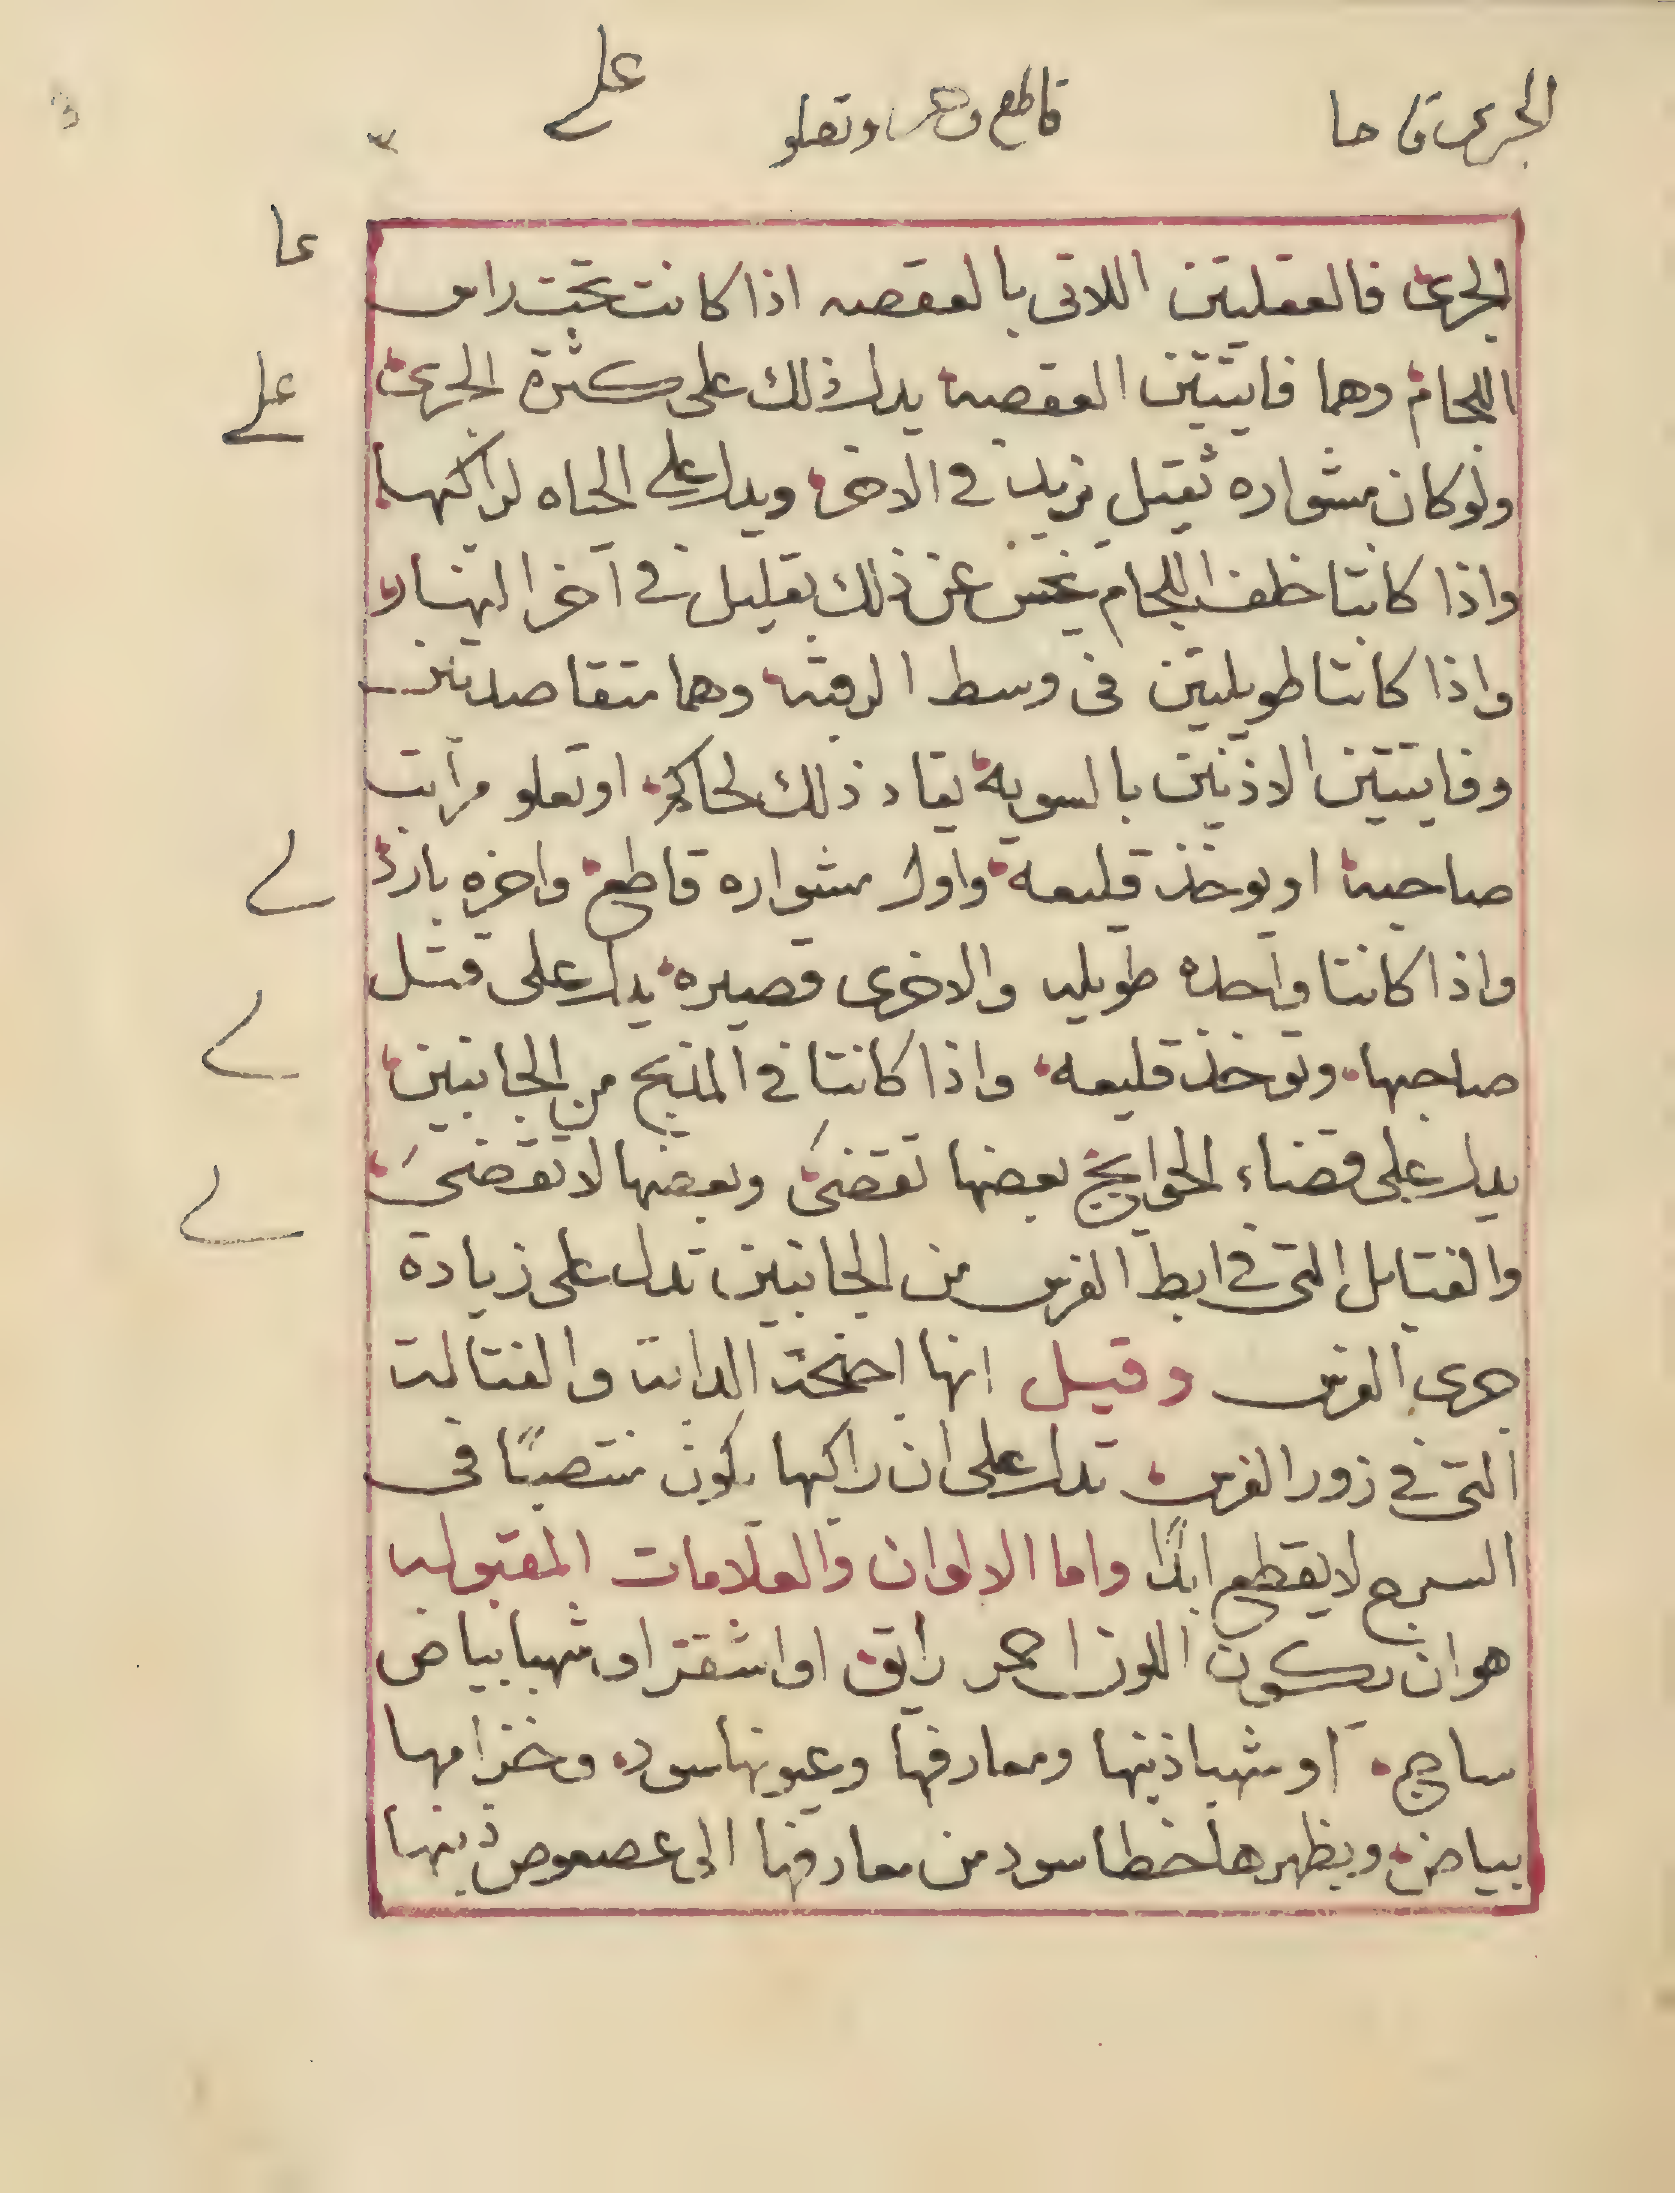 الجرى قا حا
قاطع وتعلو
على
٣
عا
على
الجرى فالعقلتين اللاتى بالعقصه اذا كانت تحت راس
اللجام وهما فايتين العقصة يدل ذلك على كثرة الجرى
ولو كان مشواره ثقيل يزيد فى الاخر ويدل على الحياه لراكبها
واذا كانتا خلف اللجام يخس عن ذلك بقليل فى آخر النهار
واذا كانتا طويلتين فى وسط الرقبه وهما متقاصدتين
وفايتتين الاذنين بالسوية يقاد ذلك لحاكم او تعلو مرآتب
صاحبه او يوخذ قليعه واول مشواره قاطع واخره بارد
واذا كانتا واحده طويله والاخرى قصيره يدل على قتل
صاحبها وتوخذ قليعه واذا كانتا فى المذبح من الجانبين
يدل على قضاء الحوايج بعضها تقضى وبعضها لا تقضى
والفتايل التى فى ابط الفرس من الجانبين تدل على زيادة
جرى الفرس وقيل انها اجنحة الدابه والفتالت
التى فى زور الفرس تدل على ان راكبها يكون منتصبًا فى
السرج لا يقطع ابدًا واما الالوان والعلامات المقبوله
هو ان يكون اللون احمر رايق او اشقر او شهبا بياض
ساج او شهبا ذينها ومعارفها وعيونها سود وخزامها
بياض وبظهرها خط اسود من معارفها الى عصعوص ذينها